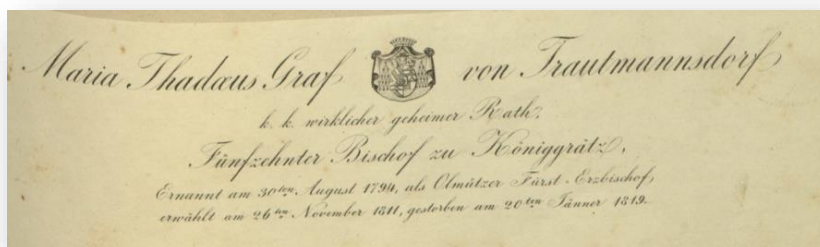 Maria Thadæus Graf von Trautmannsdorf
k. k. wirklicher geheimer Rath.
Fünfzehnter Bischof zu Königgrätz,
Ernannt am 30ten August 1794, als Olmützer Fürst-Erzbischof,
erwählt am 26ten November 1811, gestorben am 20ten Jänner 1819.